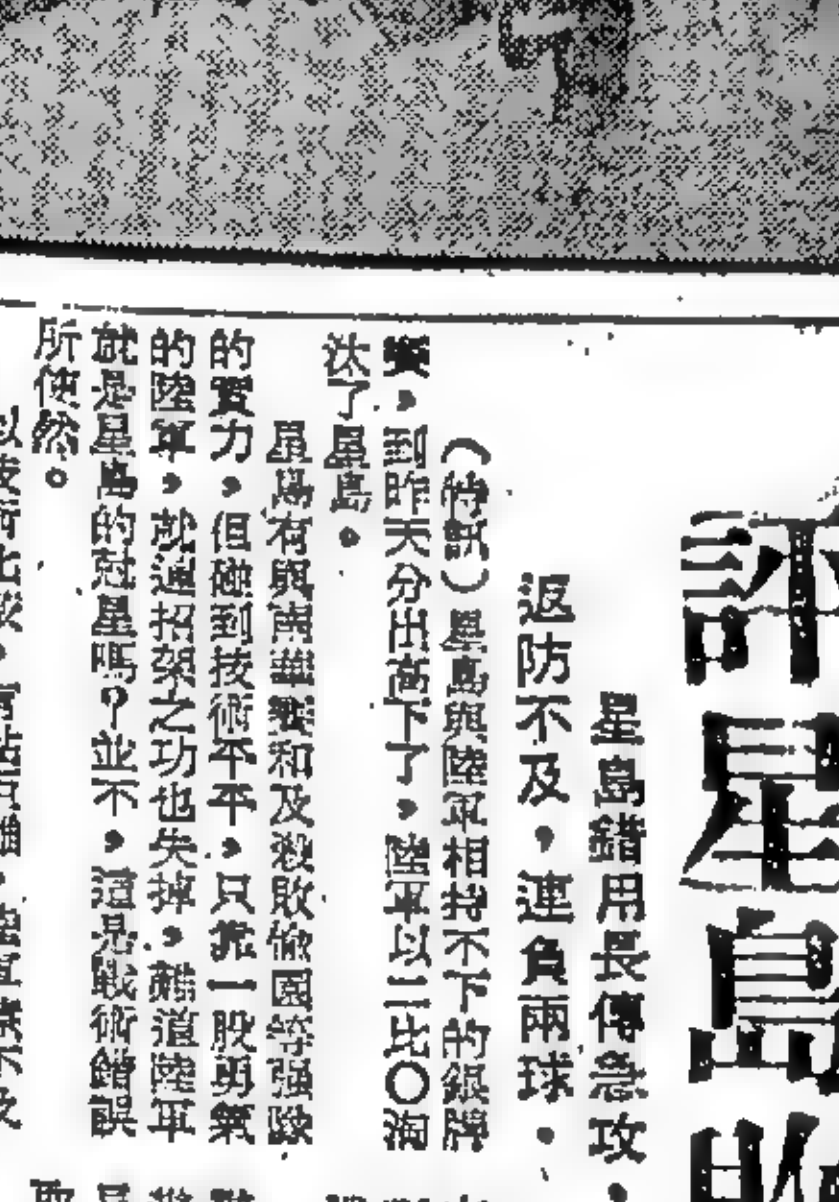 評星島
星島錯用長傳急攻，
返防不及，連負兩球．
（特訊）星島與陸軍相持不下的銀牌
賽，到昨天分出高下了，陸軍以二比〇淘
汰了星島。
星島有與南華戰和及殺敗愉園等强隊
的實力，但碰到技術平平，只靠一股勇氣
的陸軍，就連招架之功也失掉，難道陸軍
就是星島的尅星嗎？並不，這是戰術錯誤
所使然。